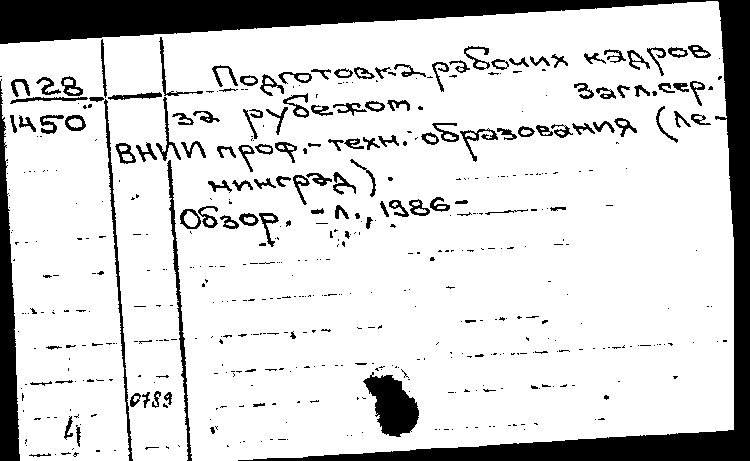 П28
1450
Подготовка рабочих кадров
за рубежом. Загл. сер.
ВНИИ проф.-техн. образования (Ле-
нинград).
Обзор. - Л., 1986-
0789
4